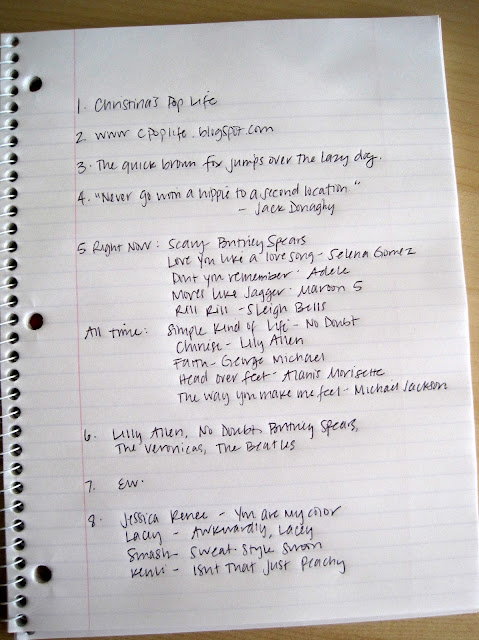 1. Christina's Pop Life
2. www.cpoplife.blogspot.com
3. The quick brown fox jumps over the lazy dog.
4. "Never go with a hippie to a second location"
- Jack Donaghy
5 Right Now: Scary- Britney Spears
Love You like a love song- Selena Gomez
Dont you remember- Adele
Moves Like Jagger- Maroon 5
Rill Rill - Sleigh Bells
All Time: Simple Kind of Life- No Doubt
Chinese- Lily Allen
Faith- George Michael
Head over feet- Alanis Morisette
The way you make me feel- Michael Jackson
6. Lilly Allen, No Doubt, Britney Spears,
The Veronicas, The Beatles
7. Ew.
8. Jessica Renee - You are my color
Lacey - Awkwardly, Lacey
Smash- Sweat. Style. Swan
Kenli - Isnt That Just Peachy